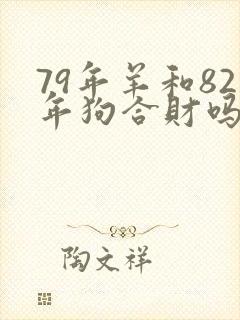 79年羊和82
年狗合財吗
陶文祥